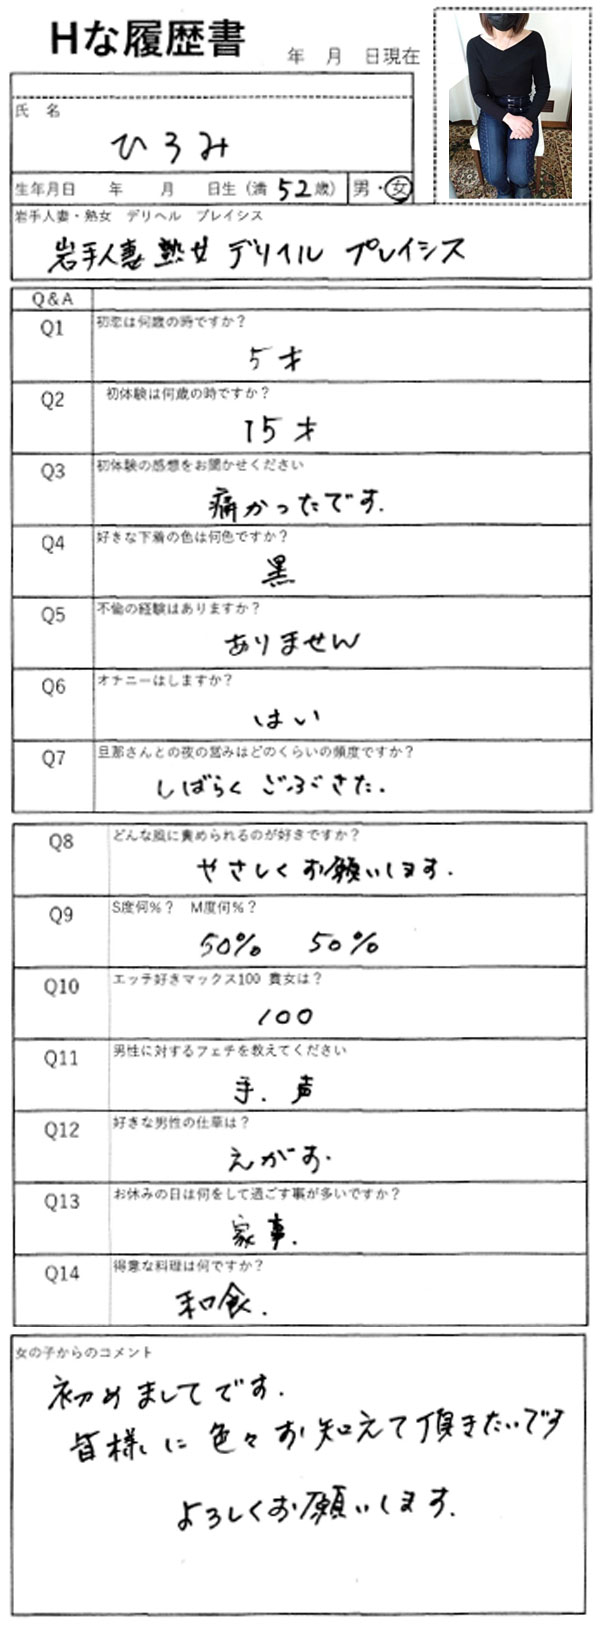 Hな履歴書
年 月 日現在
氏 名
ひろみ
生年月日 年 月 日生 (満 52歳) 男・女
岩手人妻・熟女 デリヘル プレイシス
岩手人妻 熟女 デリヘル プレイシス
Q&A
Q1 初恋は何歳の時ですか?
5才
Q4 好きな下着の色は何色ですか?
黒
Q5 不倫の経験はありますか?
ありません
Q6 オナニーはしますか?
はい
Q7 旦那さんとの夜の営みはどのくらいの頻度ですか?
しばらく ごぶさた.
Q8 どんな風に責められるのが好きですか?
やさしくお願いします.
Q9 S度何%? M度何%?
50% 50%
Q10 エッチ好きマックス100 貴女は?
100
Q11 男性に対するフェチを教えてください
手. 声
Q12 好きな男性の仕草は?
えがお.
Q13 お休みの日は何をして過ごす事が多いですか?
家事.
Q14 得意な料理は何ですか?
和食.
女の子からのコメント
初めましてです.
皆様に色々お知えて頂きたいです
よろしくお願いします.